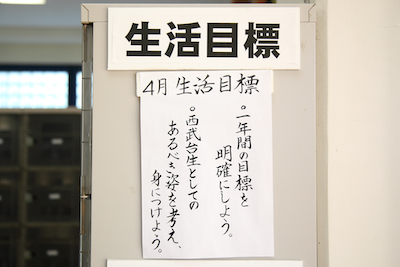 生活目標
4月生活目標
○一年間の目標を
明確にしよう。
○西武台生としての
あるべき姿を考え、
身につけよう。